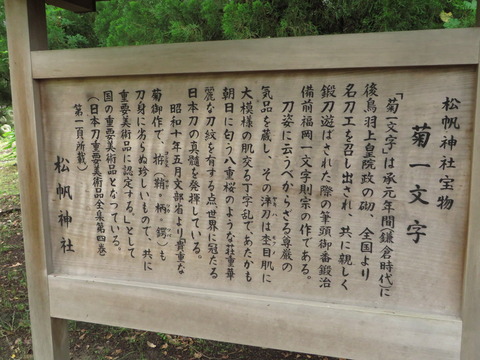 松帆神社宝物
菊一文字
「菊一文字」は承元年間(鎌倉時代に
後鳥羽上皇院政の砌、全国より
名刀工を召し出され、共に親しく
鍛刀遊ばされた際の筆頭御番鍛冶
備前福岡一文字則宗の作である。
刀姿に云うべからざる尊厳の
気品を蔵し、その津刀は杢目肌に
大模様の肌交る丁字乱で、あたかも
朝日に匂う八重桜のような荘重華
麗な刀紋を有する点、世界に冠たる
日本刀の真髄を発揮している。
昭和十年五月文部省より「貴重な
菊御作で、拵(鞘、柄、鍔)も
刀身に劣らぬ珍しいもので、共に
重要美術品に認定する。」として
国の重要美術品となっている。
(日本刀重要美術品全集第四巻
第一頁所載)
松帆神社